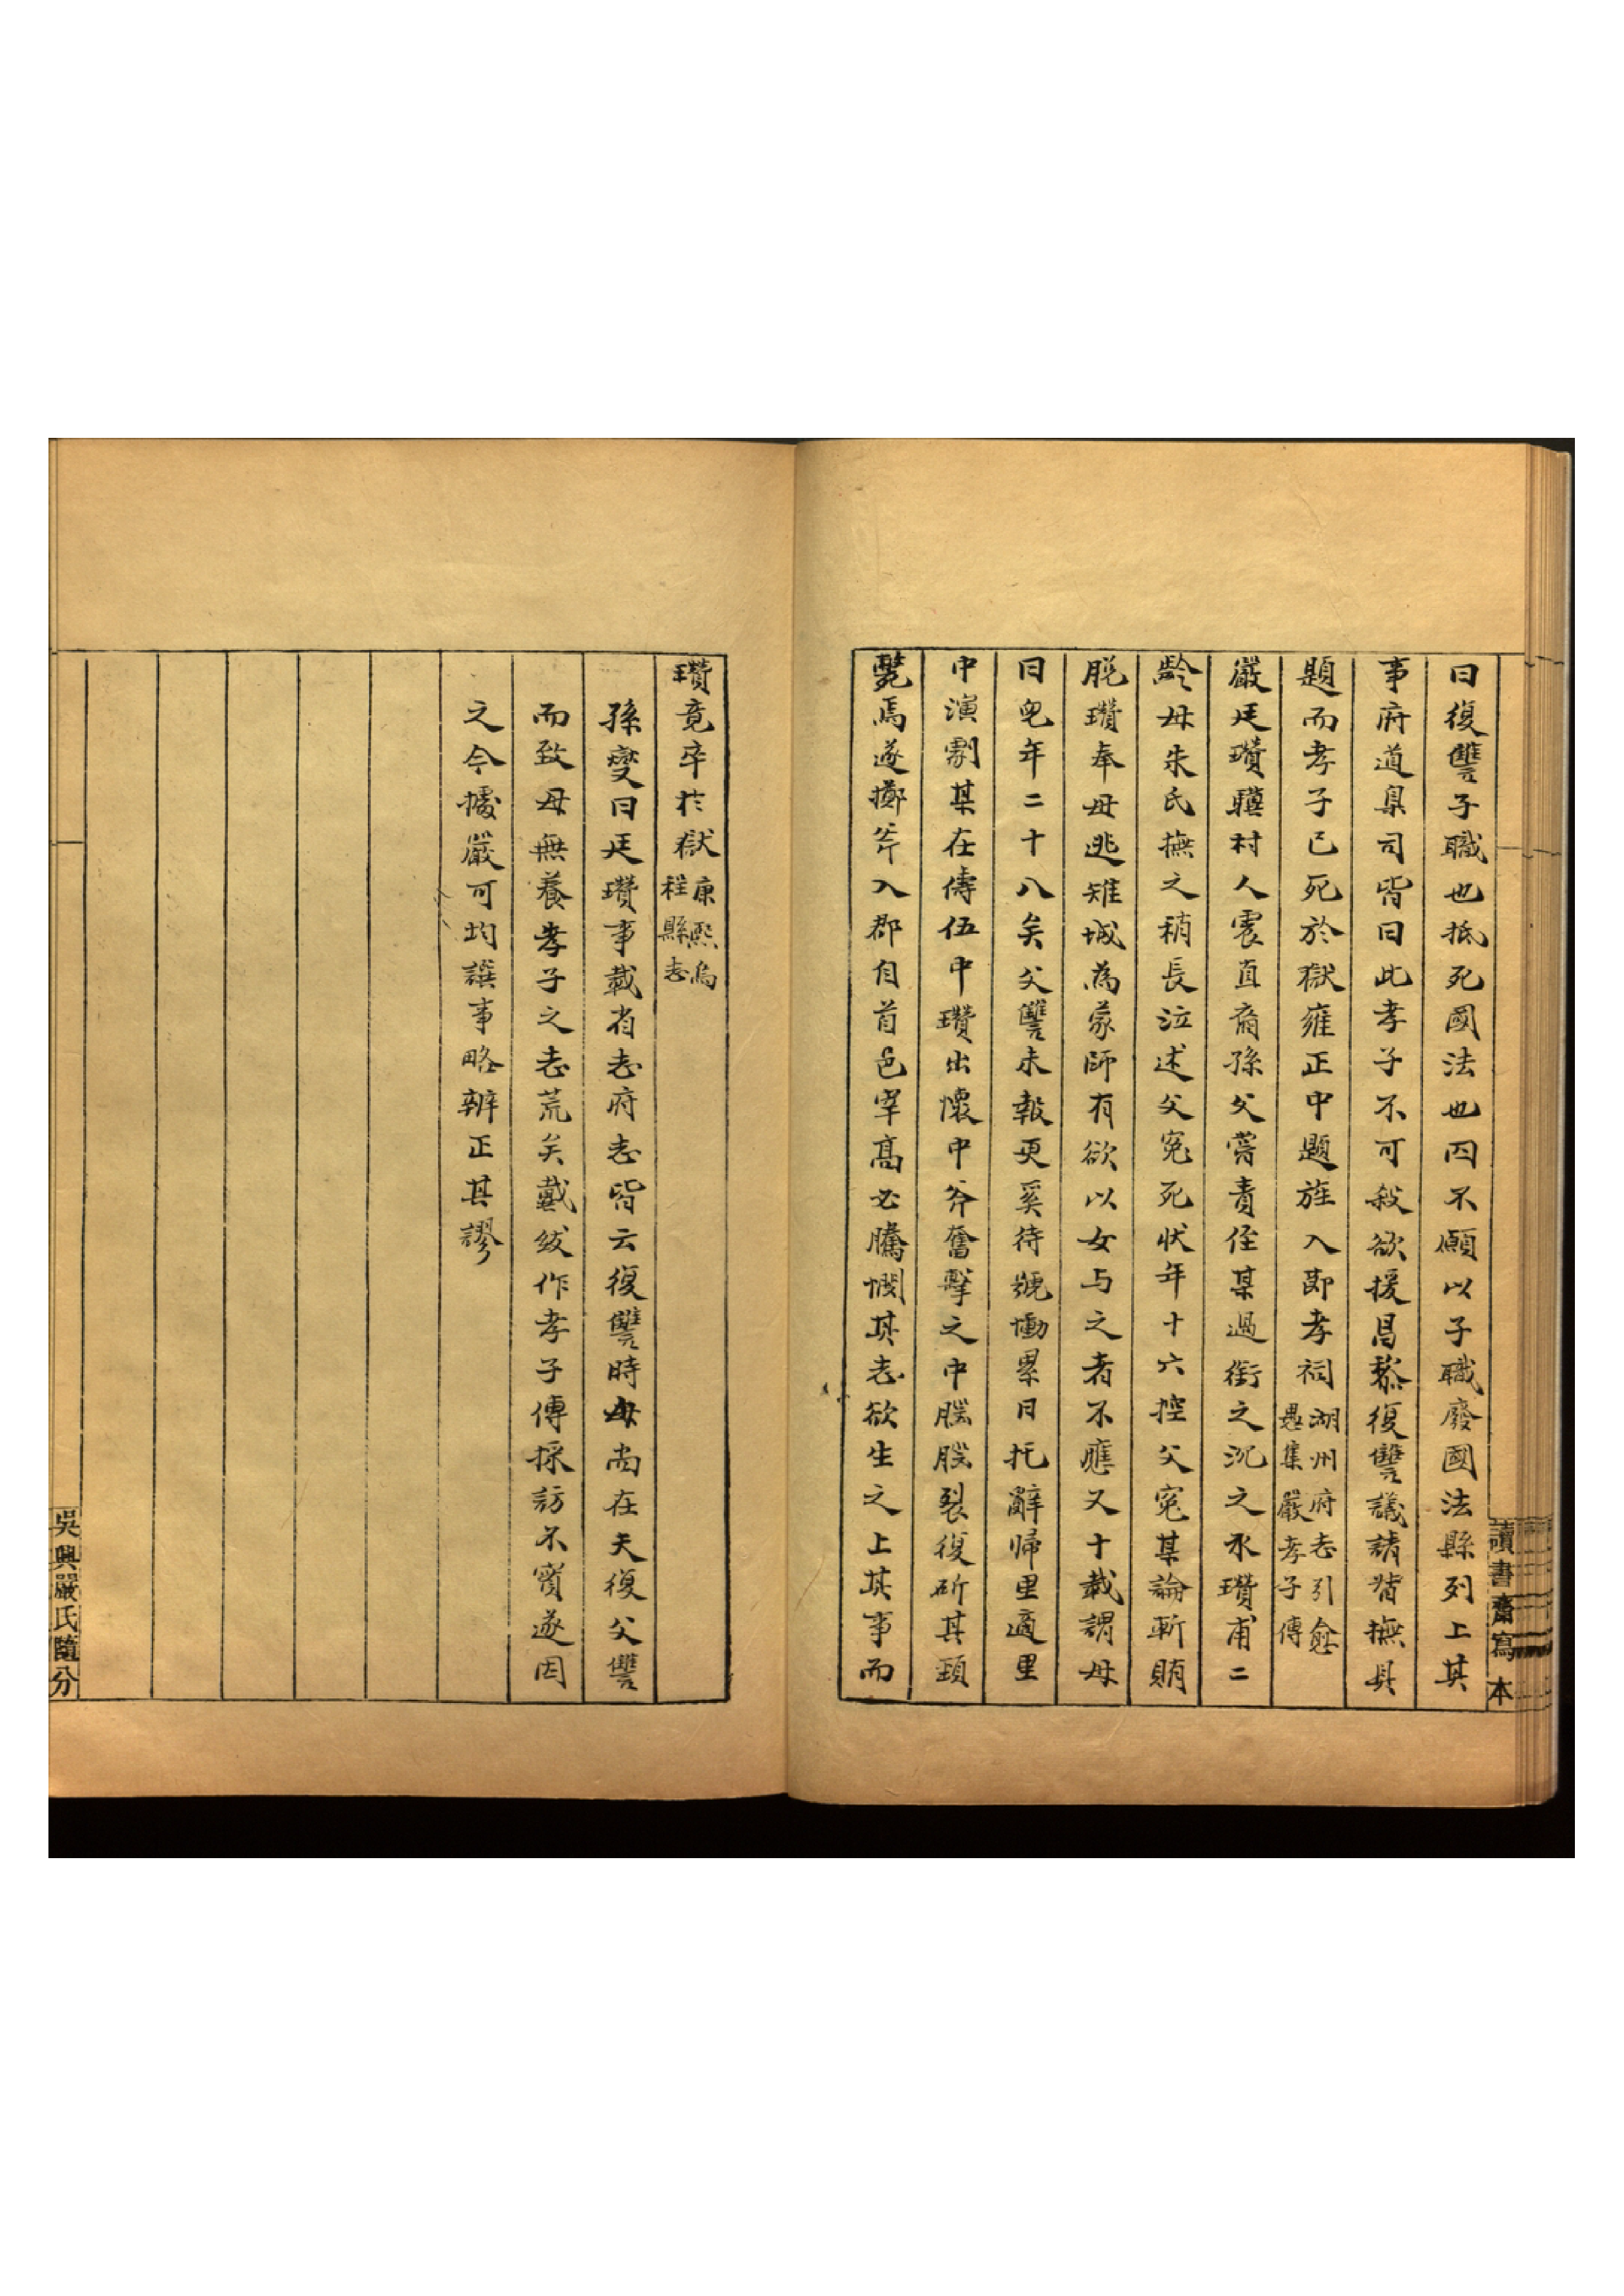 曰復讐子職也抵死國法也囚不願以子職廢國法縣列上其
事府道臬司皆曰此孝子不可殺欲援昌黎復讐議請督撫具
題而孝子已死於獄雍正中題旌入節孝祠湖州府志引愈
愚集嚴孝子傳
嚴廷瓚驥村人震直裔孫父嘗責侄某過銜之沉之水瓚甫二
齡母朱氏撫之稍長泣述父冤死狀年十六控父冤某論斬賄
脫瓚奉母逃雉城為蒙師有欲以女与之者不應又十載謂母
曰兒年二十八矣父讐未報更奚待號慟累日托辭歸里適里
中演劇某在儔伍中瓚出懷中斧奮擊之中腦腦裂復斫其頸
斃焉遂擲斧入郡自首邑宰高必騰憫其志欲生之上其事而
讀書齋寫本
瓚竟卒於獄康熙烏
程縣志
孫燮曰廷瓚事載省志府志皆云復讐時母尚在夫復父讐
而致母無養孝子之志荒矣戴紱作孝子傳採訪不實遂因
之今據嚴可均譔事略辨正其謬
吳興嚴氏隨分